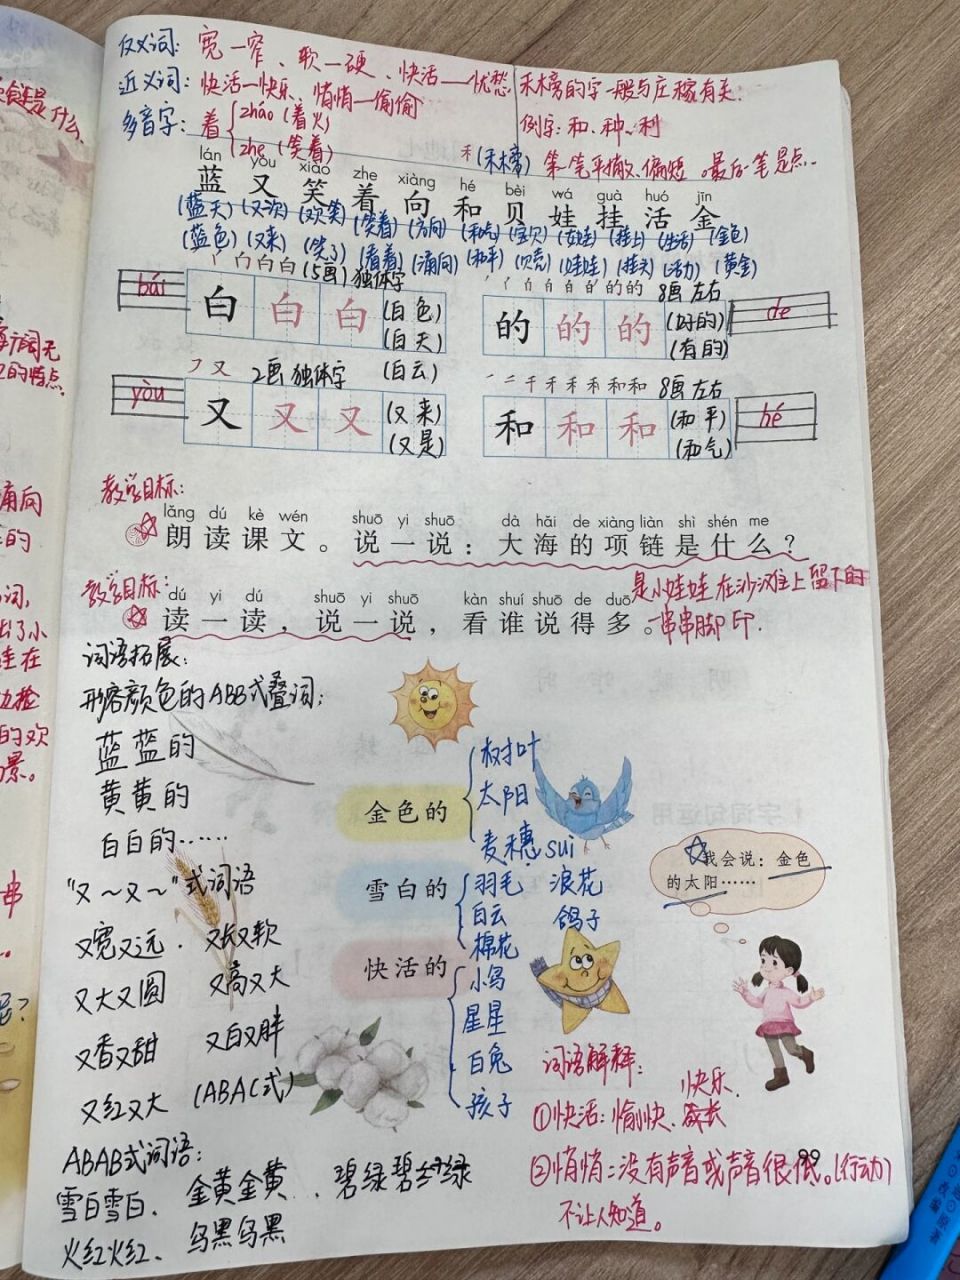 反义词: 宽—窄、软—硬、快活—忧愁
近义词: 快活—快乐、悄悄—偷偷
禾木旁的字一般与庄稼有关:
例字: 和、种、利
多音字: 着 zháo (着火)
zhe (笑着)
禾(禾木旁) 第一笔平撇、偏短。最后一笔是点..
lán yòu xiào zhe xiàng hé bèi wá guà huó jīn
蓝 又 笑 着 向 和 贝 娃 挂 活 金
(蓝天) (又次) (欢笑) (笑着) (方向) (和气) (宝贝) (女娃) (挂上) (生活) (金色)
(蓝色) (又来) (笑了) (看着) (涌向) (和平) (贝壳) (娃娃) (挂失) (活力) (黄金)
(5画) 独体字
bái 白 白 白 (白色)
(白天)
(白云)
8画 左右
的 的 的 (好的) de
(有的)
フ又 2画 独体字
yòu 又 又 又 (又来)
(又是)
一二千禾禾和和 8画 左右
和 和 和 (和平) hé
(和气)
教学目标:
lǎng dú kè wén shuō yi shuō dà hǎi de xiàng liàn shì shén me
朗读课文。说一说：大海的项链是什么？
是小娃娃在沙滩上留下的
一串串脚印.
教学目标:
dú yi dú shuō yi shuō kàn shuí shuō de duō
读一读，说一说，看谁说得多。
词语拓展:
形容颜色的ABB式叠词:
蓝蓝的
黄黄的
白白的……
"又~又~"式词语
又宽又远. 又软
又大又圆 又高又大
又香又甜 又白又胖
又红又大 (ABAC式)
ABAB式词语:
雪白雪白、金黄金黄、碧绿碧绿
火红火红、乌黑乌黑
金色的 树叶
太阳
麦穗 suì
雪白的 羽毛 浪花
白云 鸽子
棉花
快活的 小鸟
星星
白兔
孩子
我会说：金色
的太阳……
词语解释:
①快活: 愉快、快乐.
②悄悄: 没有声音或声音很低。(行动)
不让人知道。
99